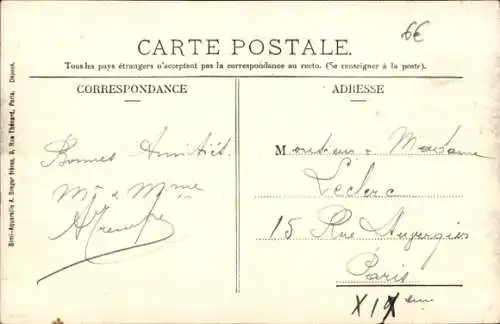 6€
CARTE POSTALE.
Tous les pays étrangers n'acceptent pas la correspondance au recto. (Se renseigner à la poste).
CORRESPONDANCE
ADRESSE
Bonnes Amitiés.
Mr & Mme
Monsieur & Madame
Leclerc
15 Rue Auvergies
Paris
XIX ème
Simi-Aquarelle A. Breger frères, 9, Rue Thénard, Paris. Déposé.